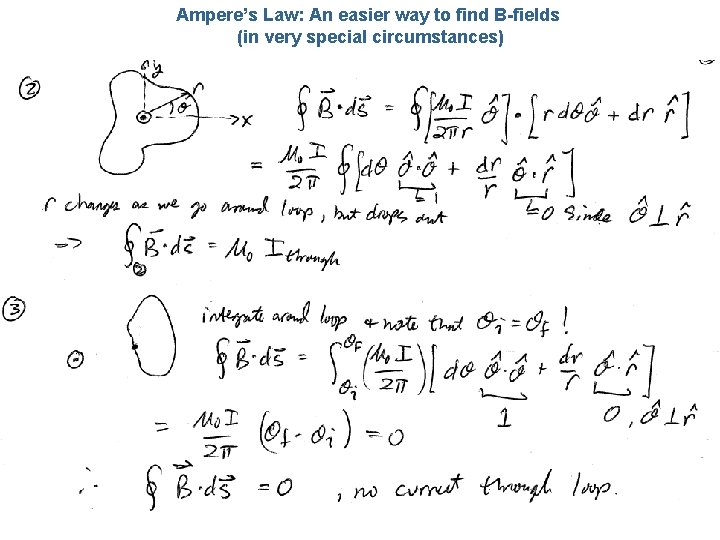 Ampere's Law: An easier way to find B-fields
(in very special circumstances)
② y r θ x ∮ B⃗·ds⃗ = ∮ [μ₀I/2πr θ̂]·[r dθ θ̂ + dr r̂]
= μ₀I/2π ∮ [dθ θ̂·θ̂ + dr/r θ̂·r̂]
=1 =0 since θ̂ ⊥ r̂
r changes as we go around loop, but drops out
=> ∮② B⃗·ds⃗ = μ₀ I through
③ integrate around loop & note that θi = θf !
∮ B⃗·ds⃗ = ∫θi^θf (μ₀I/2π) [dθ θ̂·θ̂ + dr/r θ̂·r̂]
1 0, θ̂ ⊥ r̂
= μ₀I/2π (θf - θi) = 0
∴ ∮ B⃗·ds⃗ = 0 , no current through loop.